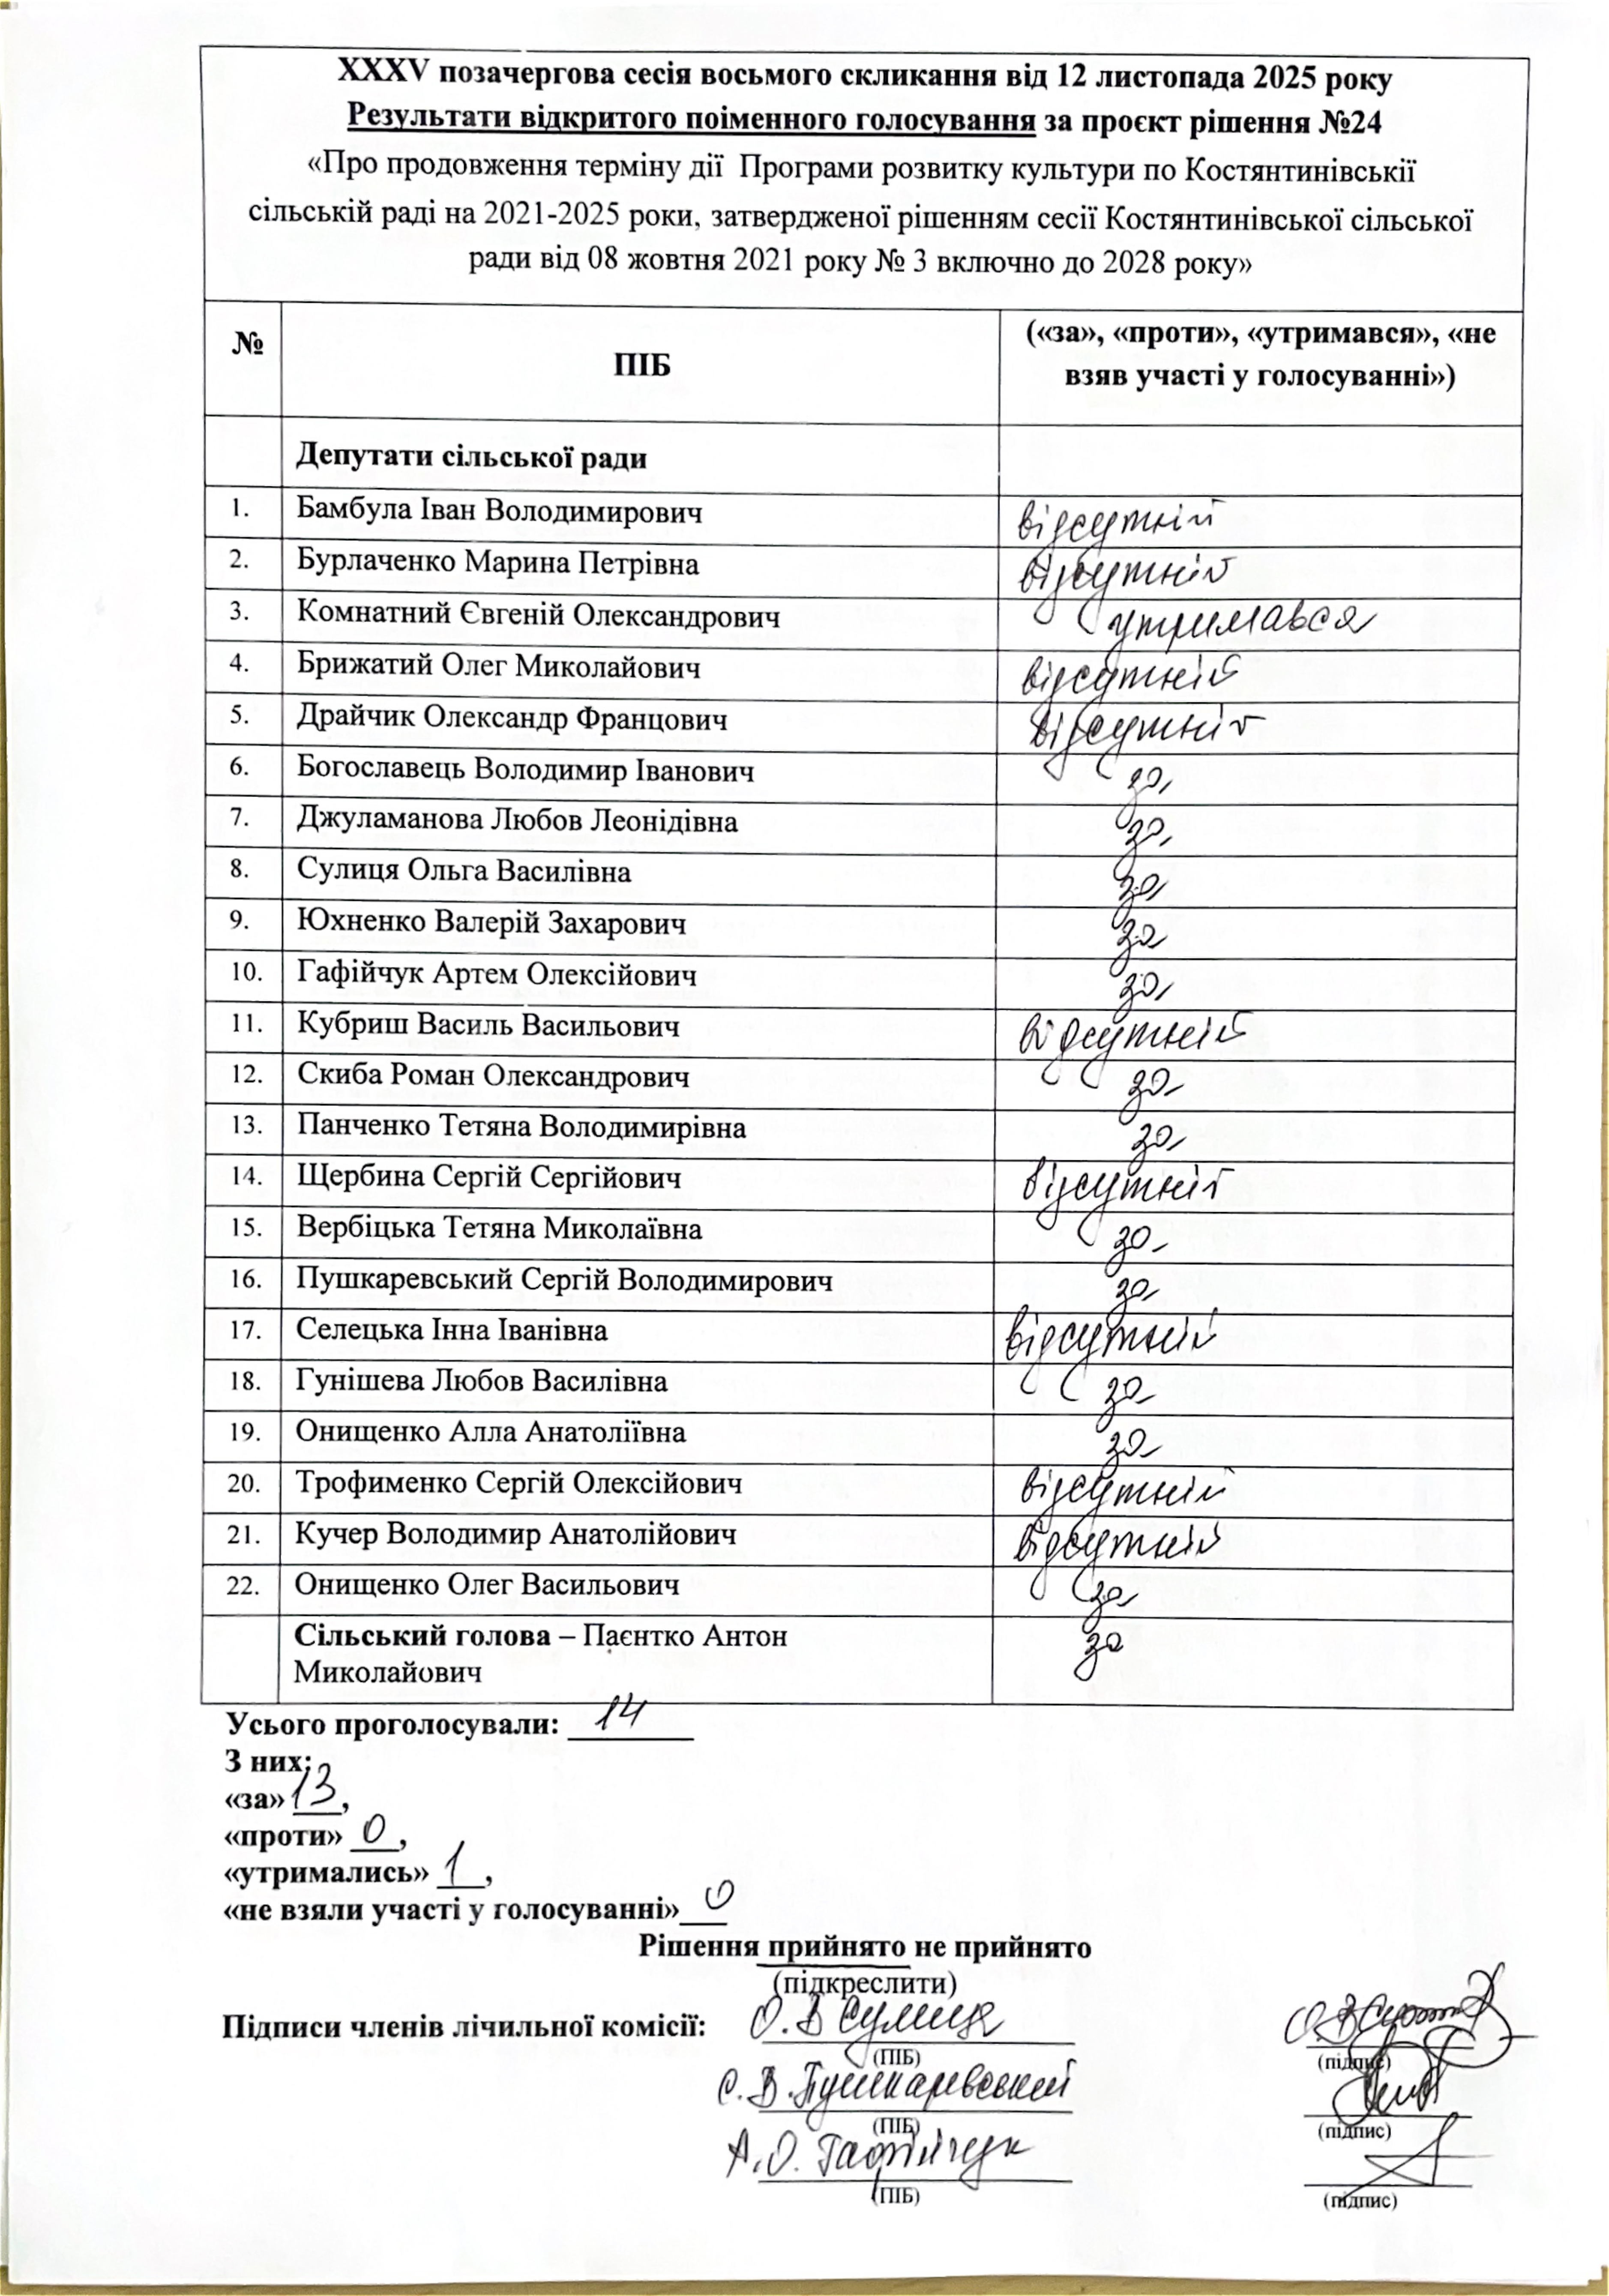 XXXV позачергова сесія восьмого скликання від 12 листопада 2025 року
Результати відкритого поіменного голосування за проєкт рішення №24
«Про продовження терміну дії Програми розвитку культури по Костянтинівскії
сільській раді на 2021-2025 роки, затвердженої рішенням сесії Костянтинівської сільської
ради від 08 жовтня 2021 року № 3 включно до 2028 року»
№ ПІБ («за», «проти», «утримався», «не
взяв участі у голосуванні»)
Депутати сільської ради
1. Бамбула Іван Володимирович відсутній
2. Бурлаченко Марина Петрівна відсутній
3. Комнатний Євгеній Олександрович утримався
4. Брижатий Олег Миколайович відсутній
5. Драйчик Олександр Францович відсутній
6. Богославець Володимир Іванович за
7. Джуламанова Любов Леонідівна за
8. Сулиця Ольга Василівна за
9. Юхненко Валерій Захарович за
10. Гафійчук Артем Олексійович за
11. Кубриш Василь Васильович відсутній
12. Скиба Роман Олександрович за
13. Панченко Тетяна Володимирівна за
14. Щербина Сергій Сергійович відсутній
15. Вербіцька Тетяна Миколаївна за
16. Пушкаревський Сергій Володимирович за
17. Селецька Інна Іванівна відсутній
18. Гунішева Любов Василівна за
19. Онищенко Алла Анатоліївна за
20. Трофименко Сергій Олексійович відсутній
21. Кучер Володимир Анатолійович відсутній
22. Онищенко Олег Васильович за
Сільський голова – Паєнтко Антон за
Миколайович
Усього проголосували: 14
З них:
«за» 13,
«проти» 0,
«утримались» 1,
«не взяли участі у голосуванні» 0
Рішення прийнято не прийнято
(підкреслити)
Підписи членів лічильної комісії: О.В Сулиця
(ПІБ) (підпис)
С.В.Пушкаревський
(ПІБ) (підпис)
А.О. Гафійчук
(ПІБ) (підпис)